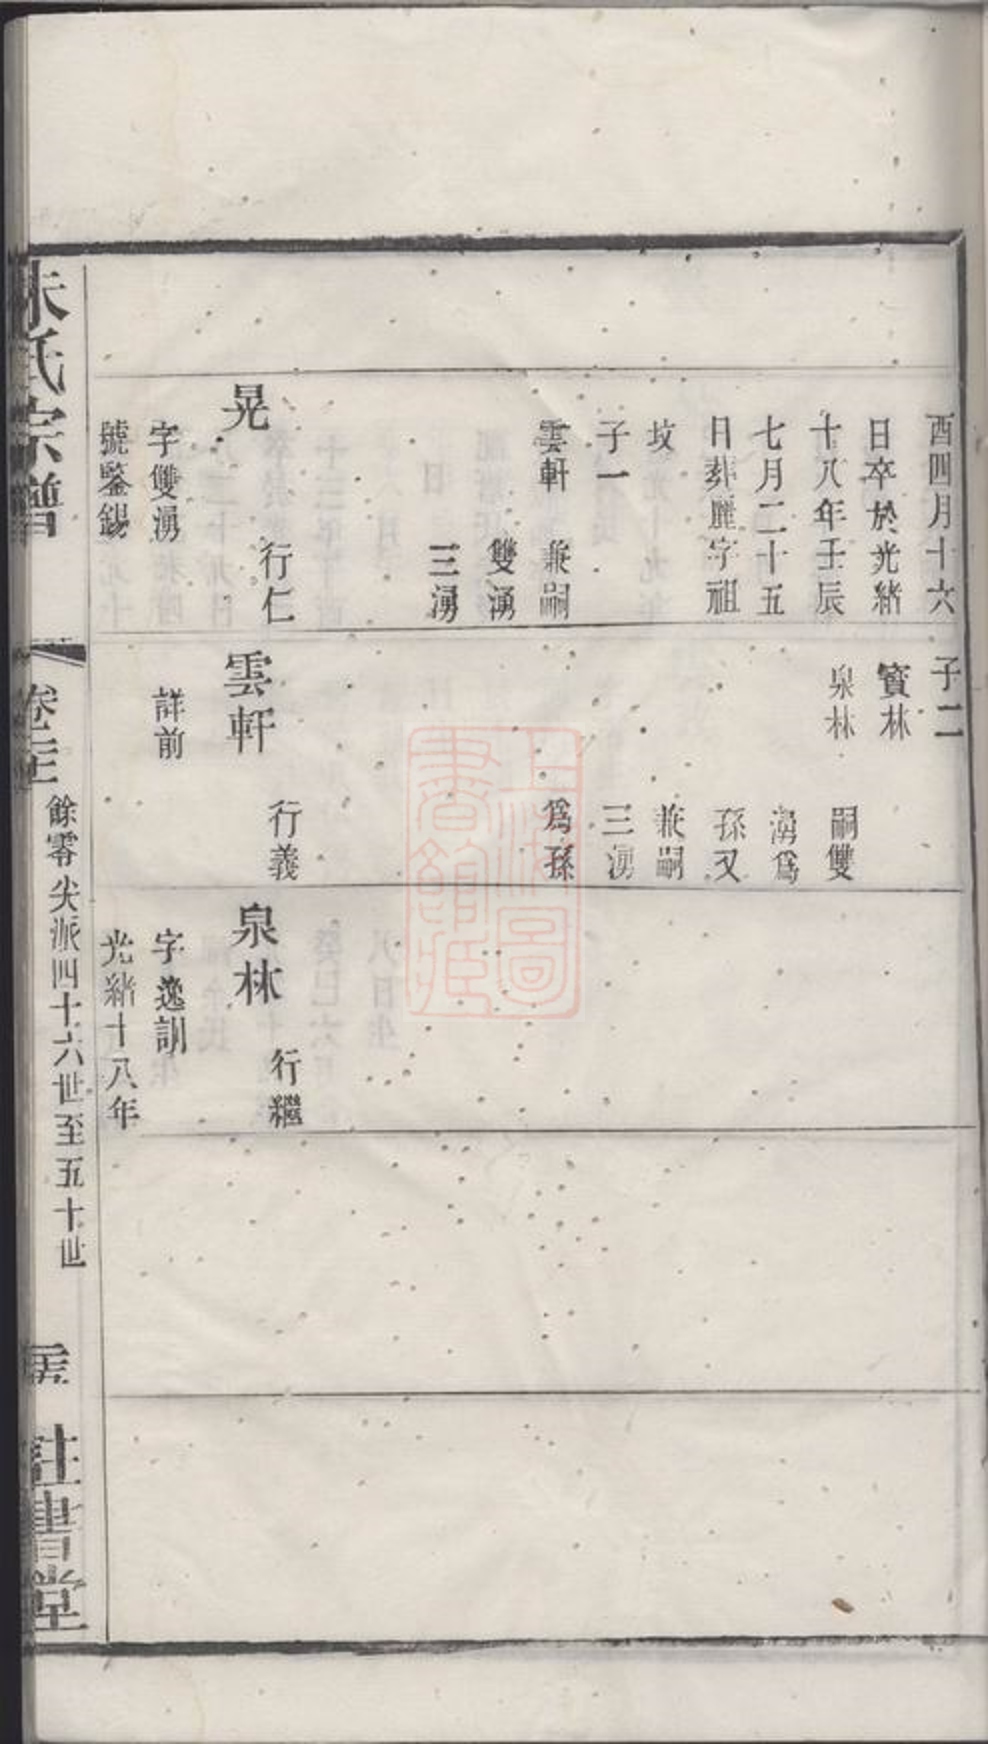 酉四月十六
日卒於光緒
十八年壬辰
七月二十五
日葬麗字祖
坟
子一
雲軒 兼嗣
雙湧
三湧
晃 行仁
字雙湧
號鑒錫
子二
寶林
泉林 嗣雙
湧爲
孫又
兼嗣
三湧
爲孫
雲軒 行義
詳前
泉林 行繼
字逸訓
光緒十八年
朱氏宗譜
餘零尖派四十六世至五十世
註書堂
上海圖
書館藏